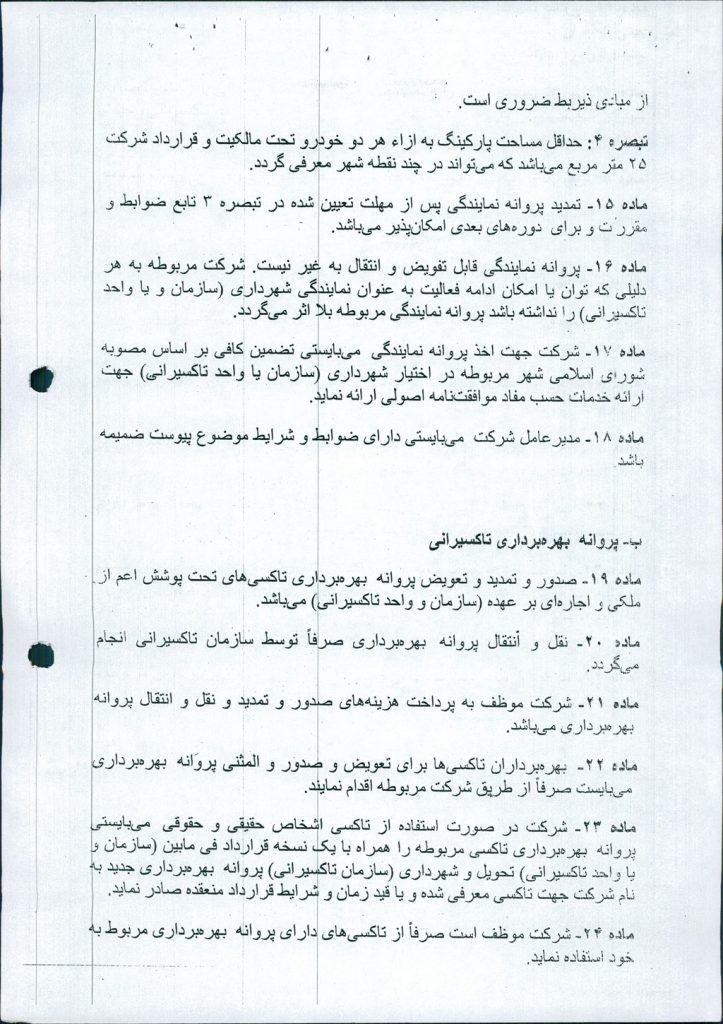 از مبادی ذیربط ضروری است.
تبصره ۴: حداقل مساحت پارکینگ به ازاء هر دو خودرو تحت مالکیت و قرارداد شرکت
۲۵ متر مربع می‌باشد که می‌تواند در چند نقطه شهر معرفی گردد.
ماده ۱۵- تمدید پروانه نمایندگی پس از مهلت تعیین شده در تبصره ۳ تابع ضوابط و
مقررات و برای دوره‌های بعدی امکان‌پذیر می‌باشد.
ماده ۱۶- پروانه نمایندگی قابل تفویض و انتقال به غیر نیست. شرکت مربوطه به هر
دلیلی که توان یا امکان ادامه فعالیت به عنوان نمایندگی شهرداری (سازمان و یا واحد
تاکسیرانی) را نداشته باشد پروانه نمایندگی مربوطه بلا اثر می‌گردد.
ماده ۱۷- شرکت جهت اخذ پروانه نمایندگی می‌بایستی تضمین کافی بر اساس مصوبه
شورای اسلامی شهر مربوطه در اختیار شهرداری (سازمان یا واحد تاکسیرانی) جهت
ارائه خدمات حسب مفاد موافقت‌نامه اصولی ارائه نماید.
ماده ۱۸- مدیرعامل شرکت می‌بایستی دارای ضوابط و شرایط موضوع پیوست ضمیمه
باشد.
ب- پروانه بهره‌برداری تاکسیرانی
ماده ۱۹- صدور و تمدید و تعویض پروانه بهره‌برداری تاکسی‌های تحت پوشش اعم از
ملکی و اجاره‌ای بر عهده (سازمان و واحد تاکسیرانی) می‌باشد.
ماده ۲۰- نقل و انتقال پروانه بهره‌برداری صرفاً توسط سازمان تاکسیرانی انجام
می‌گردد.
ماده ۲۱- شرکت موظف به پرداخت هزینه‌های صدور و تمدید و نقل و انتقال پروانه
بهره‌برداری می‌باشد.
ماده ۲۲- بهره‌برداران تاکسی‌ها برای تعویض و صدور و المثنی پروانه بهره‌برداری
می‌بایست صرفاً از طریق شرکت مربوطه اقدام نمایند.
ماده ۲۳- شرکت در صورت استفاده از تاکسی اشخاص حقیقی و حقوقی می‌بایستی
پروانه بهره‌برداری تاکسی مربوطه را همراه با یک نسخه قرارداد فی مابین (سازمان و
یا واحد تاکسیرانی) تحویل و شهرداری (سازمان تاکسیرانی) پروانه بهره‌برداری جدید به
نام شرکت جهت تاکسی معرفی شده و یا قید زمان و شرایط قرارداد منعقده صادر نماید.
ماده ۲۴- شرکت موظف است صرفاً از تاکسی‌های دارای پروانه بهره‌برداری مربوط به
خود استفاده نماید.